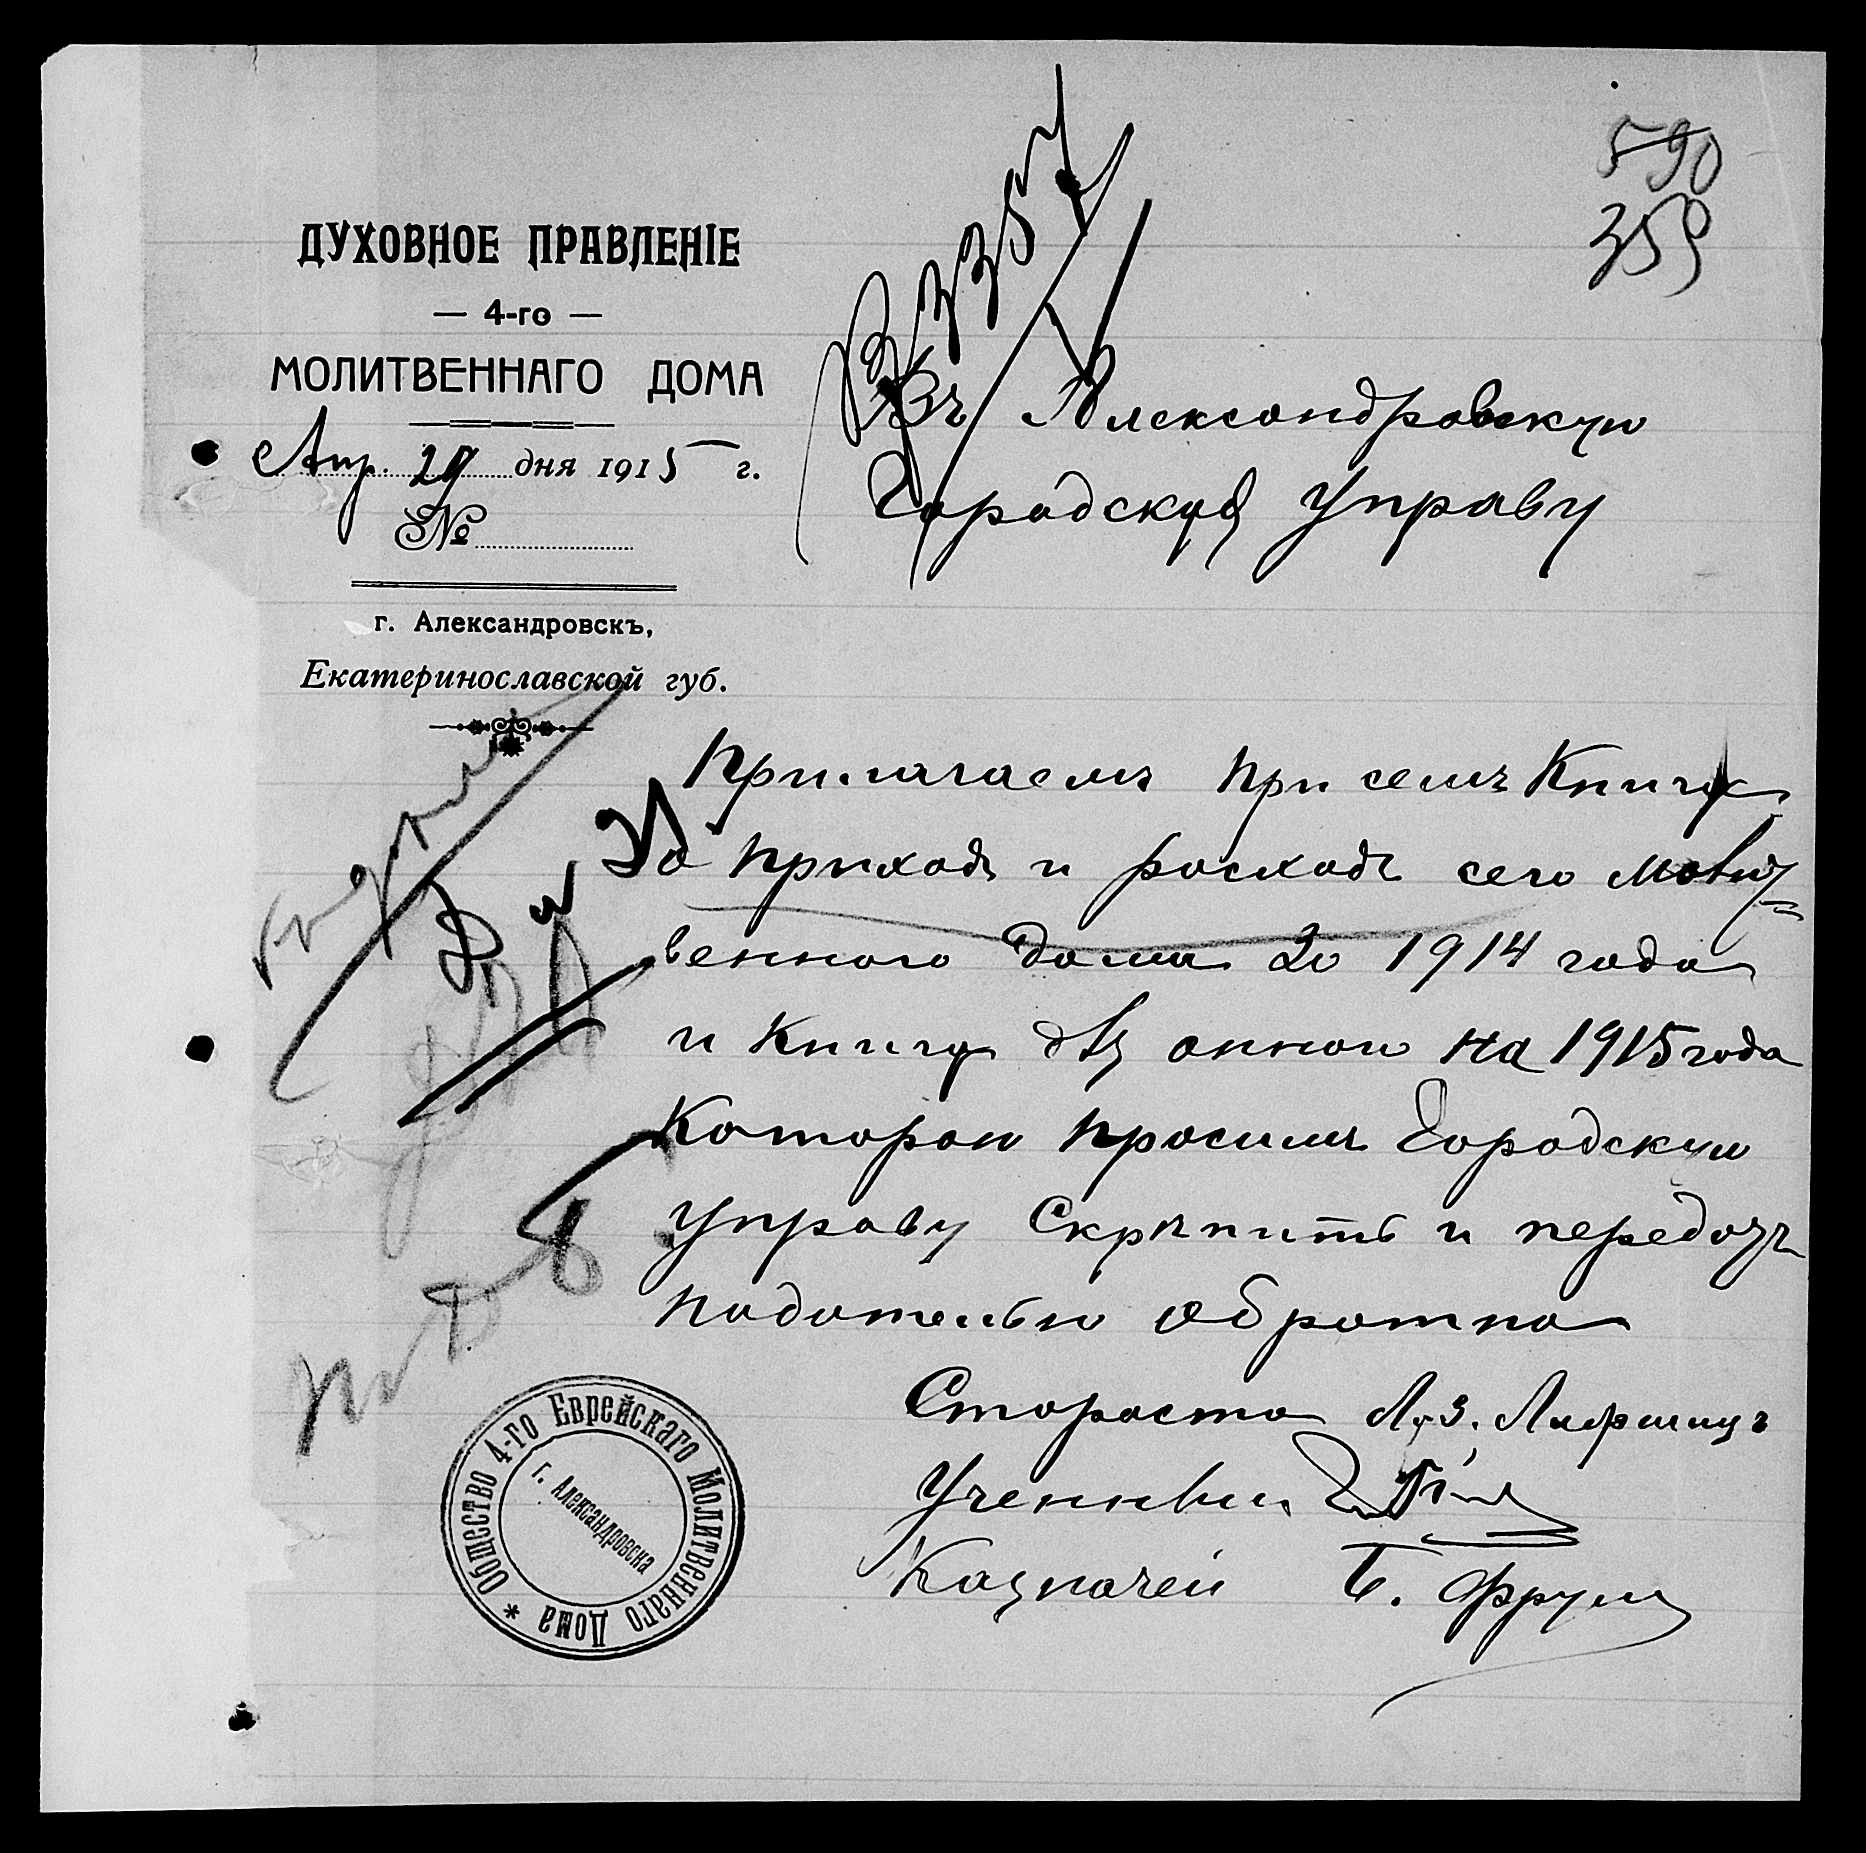 590
359
ДУХОВНОЕ ПРАВЛЕНІЕ
— 4-го —
МОЛИТВЕННАГО ДОМА
Апр. 27 дня 1915 г.
№
г. Александровскъ,
Екатеринославской губ.
3357
Въ Александровскую
Городскую Управу
Прилагаемъ при семъ Книгу
За приходъ и расходъ сего молит=
венного дома за 1914 года
и Книгу на 1915 года
Которою просимъ Городскую
Управу Скрѣпить и передать
подателью обратно
Староста Л. З. Лифшицъ
Ученный
Казначей Б. Фрум
Общество 4-го Еврейскаго Молитвеннаго Дома *
г. Александровска